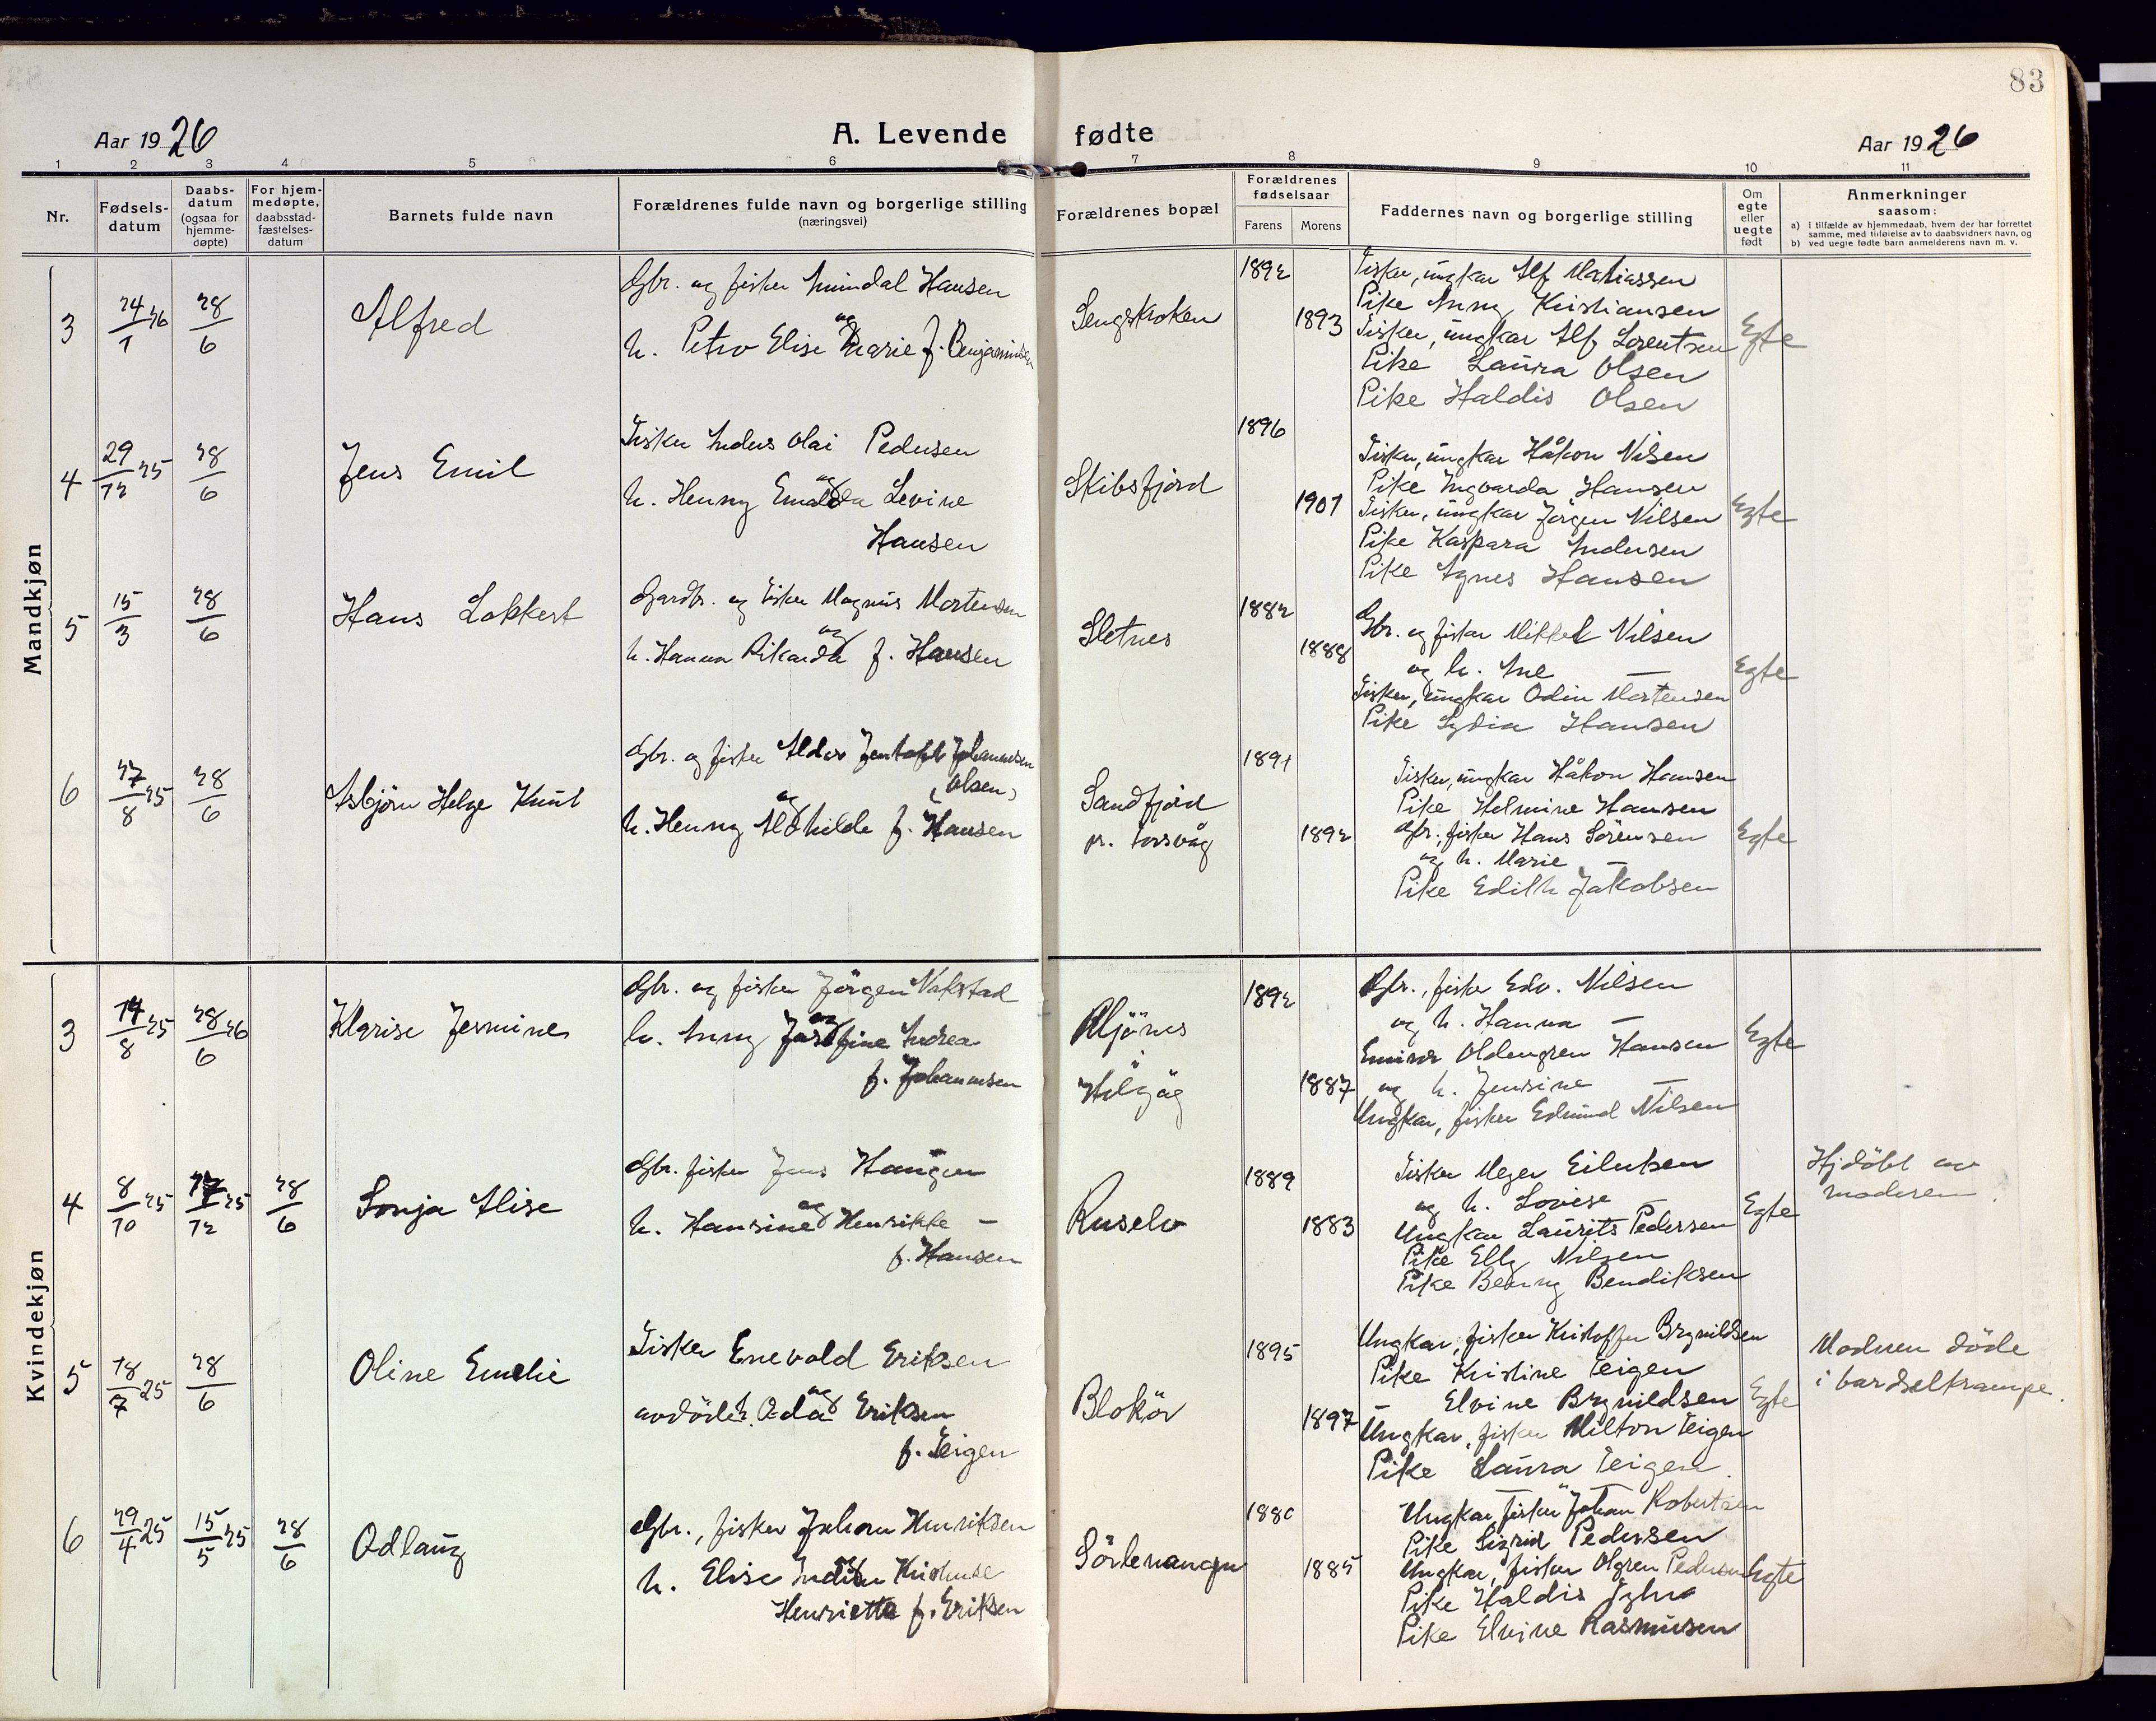 83
Aar 1926
A. Levende fødte
Aar 1926
1 2 3 4 5 6 7 8 9 10 11
Nr.
Fødsels-
datum
Daabs-
datum
(ogsaa for
hjemme-
døpte)
For hjem-
medøpte,
daabsstad-
fæstelses-
datum
Barnets fulde navn
Forældrenes fulde navn og borgerlige stilling
(næringsvei)
Forældrenes bopæl
Forældrenes
fødselsaar
Farens
Morens
Faddernes navn og borgerlige stilling
Om
egte
eller
uegte
født
Anmerkninger
saasom:
a) i tilfælde av hjemmedaab, hvem der har forrettet
samme, med tilføielse av to daabsvidners navn, og
b) ved uegte fødte barn anmelderens navn m. v.
Mandkjøn
3
24/1 26
28/6
Alfred
Gbr. og fisker Amindal Hansen
og
h. Petra Elise Marie f. Benjaminsen
Sengskroken
1892
1893
Fisker, ungkar Alf Mathiassen
Pike Anny Kristiansen
Fisker, ungkar Alf Lorentsen
Pike Laura Olsen
Pike Haldis Olsen
Egte
4
29/12 25
28/6
Jens Emil
Fisker Anders Olai Pedersen
og
h. Henny Levine
Hansen
Skibsfjord
1896
1901
Fisker, ungkar Håkon Nilsen
Pike Ingvarda Hansen
Fisker, ungkar Jörgen Nilsen
Pike Kaspara Andersen
Pike Agnes Hansen
Egte
5
15/3
28/6
Hans Lokkert
Gardbr. og fisker Magnus Mortensen
og
h. Hanna Rikarda f. Hansen
Sletnes
1882
1888
Gbr. og fisker Mikkel Nilsen
og h. Ane —
Fisker, ungkar Odin Mortensen
Pike Lydia Hansen
Egte
6
27/8 25
28/6
Asbjørn Helge Knut
Gbr. og fisker Aldor Jentoft Johannesen
(Olsen)
og
h. Henny Aldhilde f. Hansen
Sandfjord
pr. Torsvåg
1891
1892
Fisker, ungkar Håkon Hansen
Pike Helmine Hansen
Gbr., fisker Hans Sörensen
og h. Marie —
Pike Edith Jakobsen
Egte
Kvindekjøn
3
14/8 25
28/6 26
Klarise Jermine
Gbr. og fisker Jörgen Nakstad
og
h. Anny Josefine Andrea
f. Johannesen
1892
1887
Gbr., fisker Edv. Nilsen
og h. Hanna —
Hansen
og h. Jensine —
Ungkar, fisker Edmund Nilsen
Egte
4
8/10 25
17/12 25
28/6
Sonja Alise
Gbr. fisker Jens Haugen
og
h. Hansine Henrikke —
f. Hansen
Ruselv
1889
1883
Fisker Meyer Eilertsen
og h. Lovise —
Ungkar Laurits Pedersen
Pike Elly Nilsen
Pike Benny Bendiksen
Egte
Hjdöbt av
moderen.
5
18/7 25
28/6
Oline Emelie
Fisker Enevold Eriksen
og
avdöde h. Oda Eriksen
f. Teigen
Blokör
1895
1897
Ungkar, fisker Kristoffer Brynildsen
Pike Kristine Teigen
— Elvine Brynildsen
Ungkar, fisker Milton Teigen
Pike Laura Teigen.
Egte
Moderen döde
i barselkrampe.
6
29/4 25
15/5 25
28/6
Odlaug
Gbr., fisker Johan Henriksen
og
h. Elise Kristine
Henriette f. Eriksen
Sörlenangen
1880
1885
Ungkar, fisker Johan Robertsen
Pike Sigrid Pedersen
Ungkar, fisker Olgren Pedersen
Pike Haldis
Pike Elvine Rasmusen
Egte